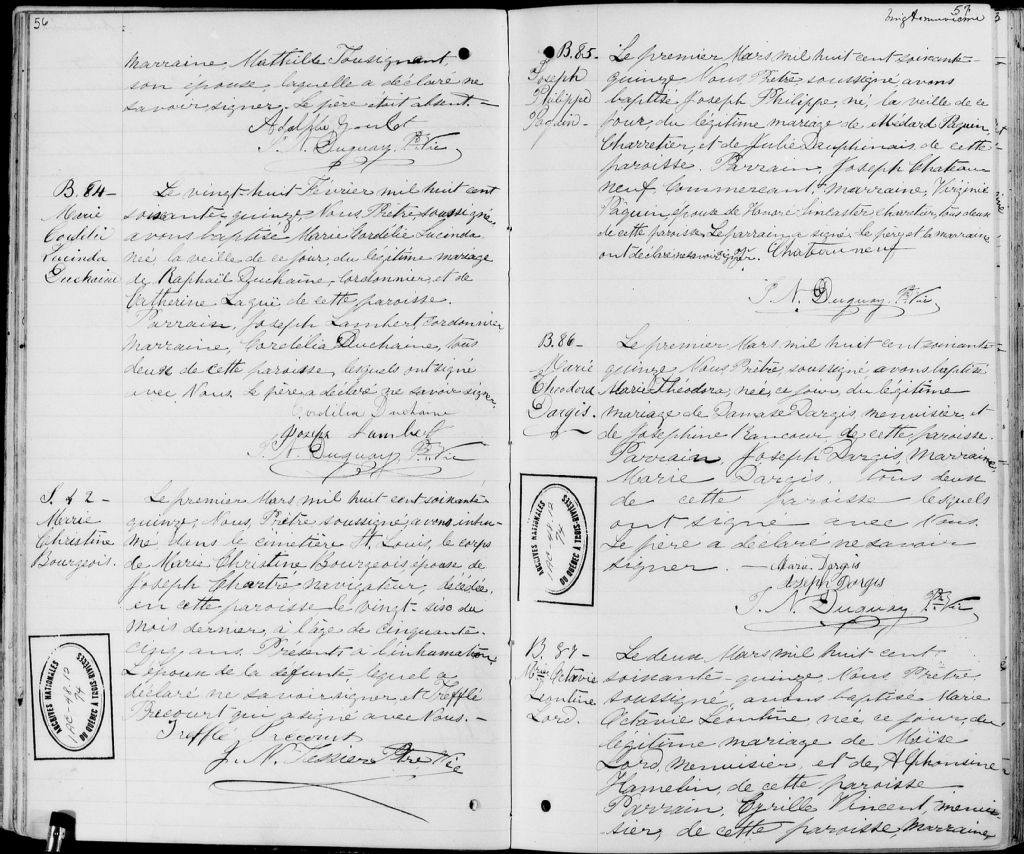 56
marraine, Mathilde Tousignant,
son épouse, laquelle a déclaré ne
savoir signer. Le père était absent. —
Adolphe Goulet
T. N. Duguay, Ptre Vic
B. 84 —
Marie
Cordélie
Lucinda
Duchaine
Le vingt-huit Février mil huit cent
soixante quinze Nous Prêtre soussigné
avons baptisé Marie Cordélie Lucinda
née la veille de ce jour, du légitime mariage
de Raphaël Duchaine, cordonnier, et de
Catherine Lagüe de cette paroisse.
Parrain, Joseph Lambert, cordonnier
marraine, Cordélia Duchaine, tous
deux de cette paroisse, lesquels ont signé
avec Nous. Le père a déclaré ne savoir signer.
Cordélia Duchaine
Joseph Lambert
T. N. Duguay, Ptre Vic
S. 42 —
Marie
Christine
Bourgeois.
Le premier Mars mil huit cent soixante
quinze, Nous, Prêtre soussigné, avons inhu-
mé dans le cimetière St. Louis, le corps
de Marie Christine Bourgeois épouse de
Joseph Chartre navigateur, décédée
en cette paroisse le vingt-six du
mois dernier, à l'âge de cinquante-
cinq ans. Présents à l'inhumation
L'époux de la défunte, lequel a
déclaré ne savoir signer, et Trefflé
Brecourt qui a signé avec Nous. —
Trefflé Brecourt
J. N. Tessier Ptre Vic
ARCHIVES NATIONALES
DU QUÉBEC À TROIS-RIVIÈRES
57
Vingt-neuvième
B. 85.
Joseph
Philippe
Paquin —
Le premier Mars mil huit cent soixante-
quinze Nous Prêtre soussigné avons
baptisé Joseph Philippe, né, la veille de ce
jour, du légitime mariage de Médard Paquin,
Charretier, et de Julie Dauphinais de cette
paroisse. Parrain, Joseph Chateau
neuf, Commerçant, marraine, Virginie
Paquin, épouse de Honoré Lancaster, charretier, tous deux
de cette paroisse. Le parrain a signé. Le père et la marraine
ont déclaré ne savoir signer. Chateauneuf
T. N. Duguay. Ptre Vic
B. 86 —
Marie
Théodora
Dargis.
Le premier Mars mil huit cent soixante-
quinze Nous Prêtre, soussigné avons baptisé
Marie Théodora, née, ce jour, du légitime
mariage de Damase Dargis, menuisier, et
de Joséphine Rancour, de cette paroisse.
Parrain, Joseph Dargis, Marraine
Marie Dargis, tous deux
de cette paroisse lesquels
ont signé avec Nous.
Le père a déclaré ne savoir
signer. — Marie Dargis
Joseph Dargis
T. N. Duguay Ptre Vic
ARCHIVES NATIONALES
DU QUÉBEC À TROIS-RIVIÈRES
B. 87 —
Marie Octavie
Léontine
Lord.
Le deux Mars mil huit cent
soixante-quinze Nous Prêtre
soussigné, avons baptisé Marie
Octavie Léontine née ce jour, du
légitime mariage de Moïse
Lord, menuisier, et de Alphonsine
Hamelin, de cette paroisse
Parrain, Cyrille Vincent, menui-
sier, de cette paroisse, Marraine